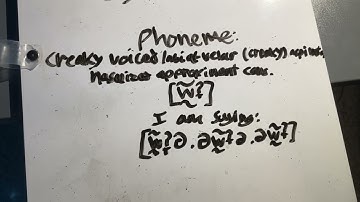 Phoneme:
Creaky voiced labial-velar (creaky)
Nasalized approximant cons.
[w̰̃ʔ]
I am saying:
[w̰̃ʔə.əw̰̃ʔə.əw̰̃ʔ]